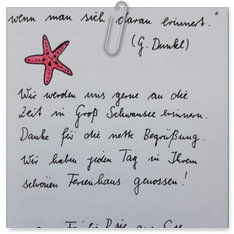 wenn man sich daran erinnert."
(G. Dunkl)
Wir werden uns gerne an die
Zeit in Groß Schwansee erinnern.
Danke für die nette Begrüßung.
Wir haben jeden Tag in Ihrem
schönen Ferienhaus genossen!